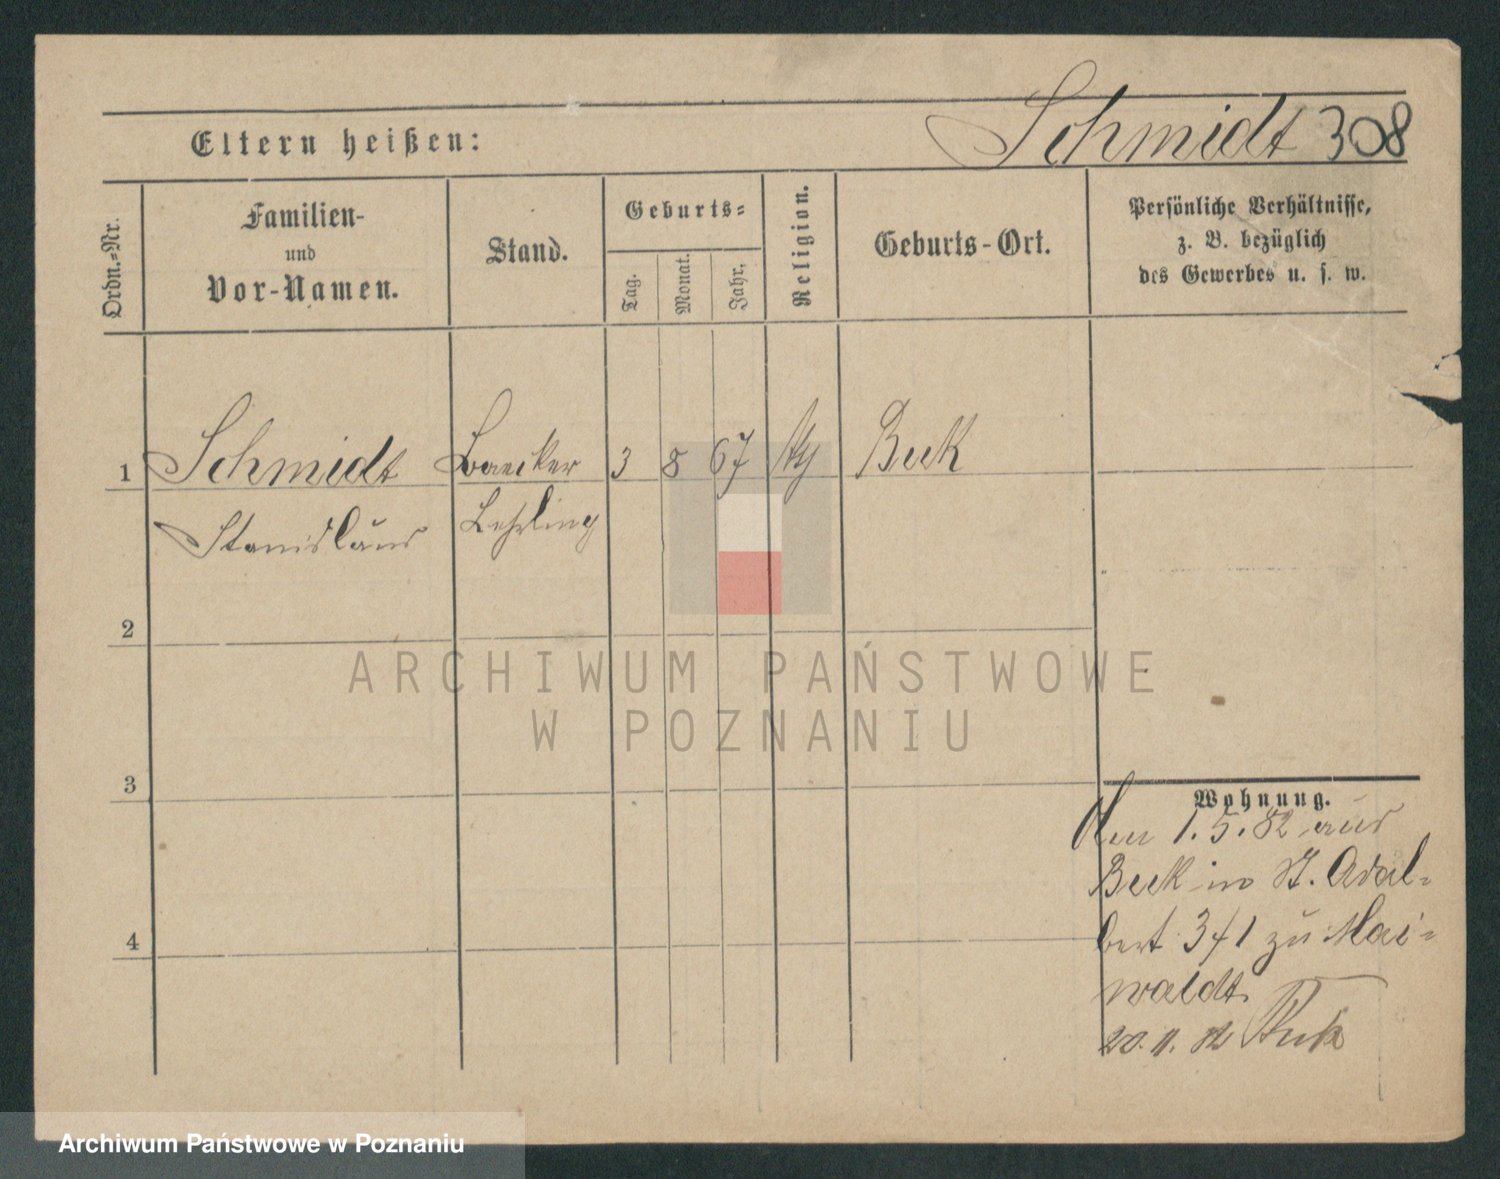 Eltern heißen:
Schmidt 308
Ordn.-Nr.
Familien-
und
Vor-Namen.
Stand.
Geburts-
Tag.
Monat.
Jahr.
Religion.
Geburts-Ort.
Persönliche Verhältnisse,
z. B. bezüglich
des Gewerbes u. s. w.
1 Schmidt Baecker 3 8 67 Beek
Stanislaus Lehrling
2
3
4
Wohnung.
1.5.82 aus
Beek in St. Adal-
bert 3/1 zu Mai-
waldt
20.11.82
ARCHIWUM PAŃSTWOWE
W POZNANIU
Archiwum Państwowe w Poznaniu